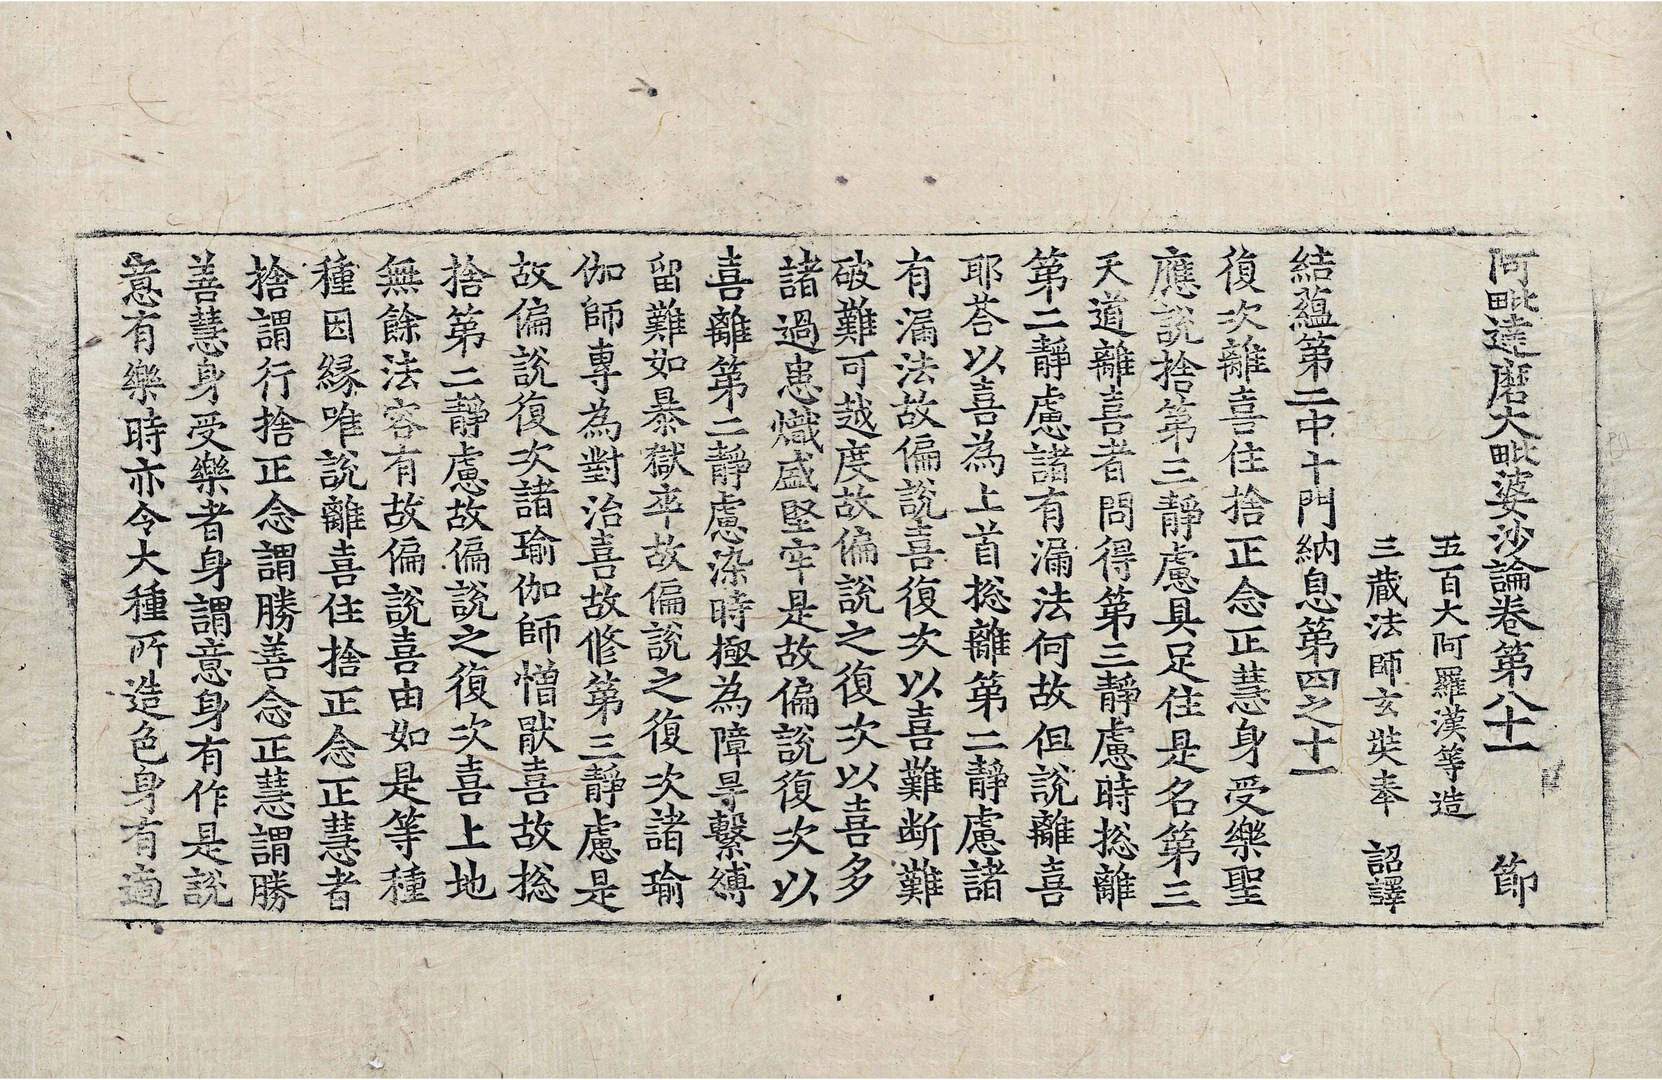 阿毗達磨大毗婆沙論卷第八十一 節
五百大阿羅漢等造
三藏法師玄奘奉 詔譯
結蘊第二中十門納息第四之十一
復次離喜住捨正念正慧身受樂聖
應說捨第三靜慮具足住是名第三
天道離喜者問得第三靜慮時捴離
第二靜慮諸有漏法何故但說離喜
耶荅以喜為上首捴離第二靜慮諸
有漏法故偏說喜復次以喜難断難
破難可越度故偏說之復次以喜多
諸過患熾盛堅牢是故偏說復次以
喜離第二靜慮染時極為障㝵繫縛
留難如暴獄卒故偏說之復次諸瑜
伽師專為對治喜故修第三靜慮是
故偏說復次諸瑜伽師憎猒喜故捴
捨第二靜慮故偏說之復次喜上地
無餘法容有故偏說喜由如是等種
種因縁唯說離喜住捨正念正慧者
捨謂行捨正念謂勝善念正慧謂勝
善慧身受樂者身謂意身有作是說
意有樂時亦令大種所造色身有適